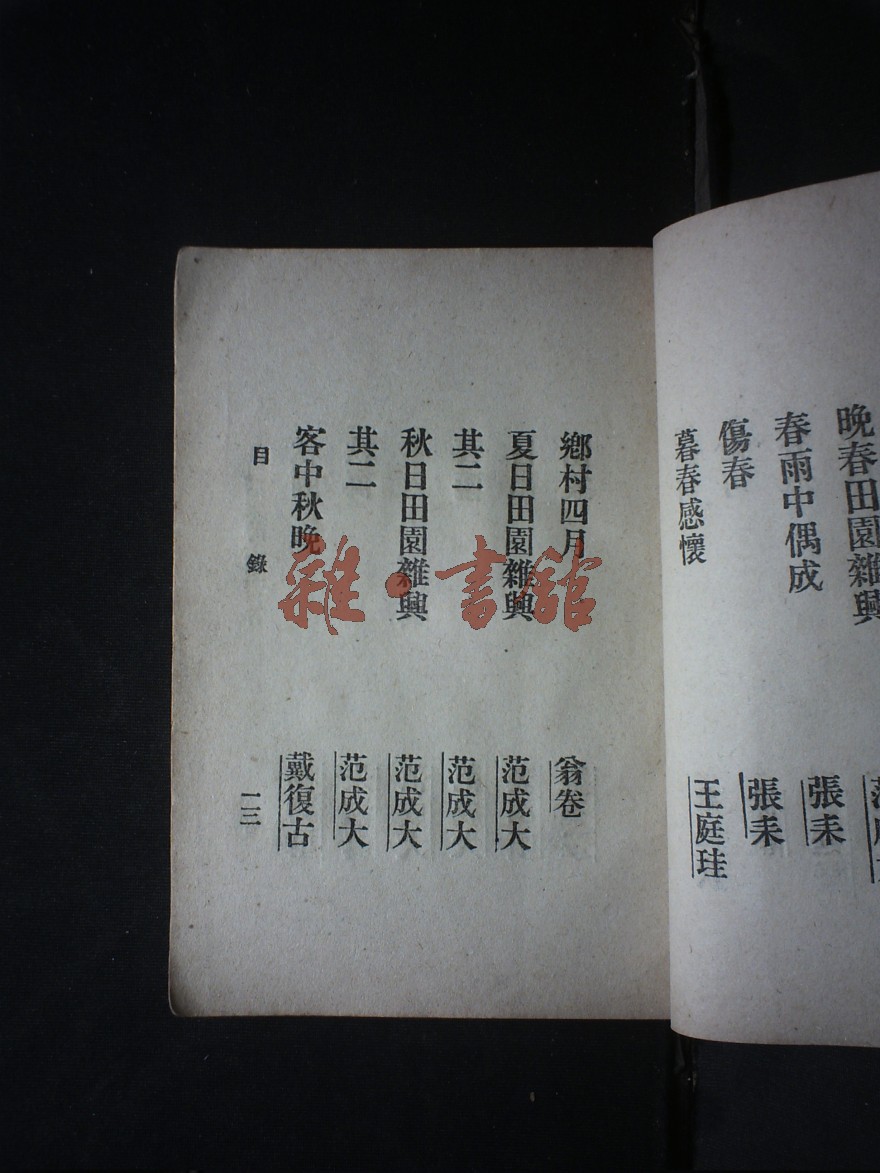 晚春田園雜興
春雨中偶成
傷春
暮春感懷
張耒
張耒
王庭珪
鄉村四月
翁卷
夏日田園雜興
范成大
其二
范成大
秋日田園雜興
范成大
其二
范成大
客中秋晚
戴復古
目錄
一三
雜·書館